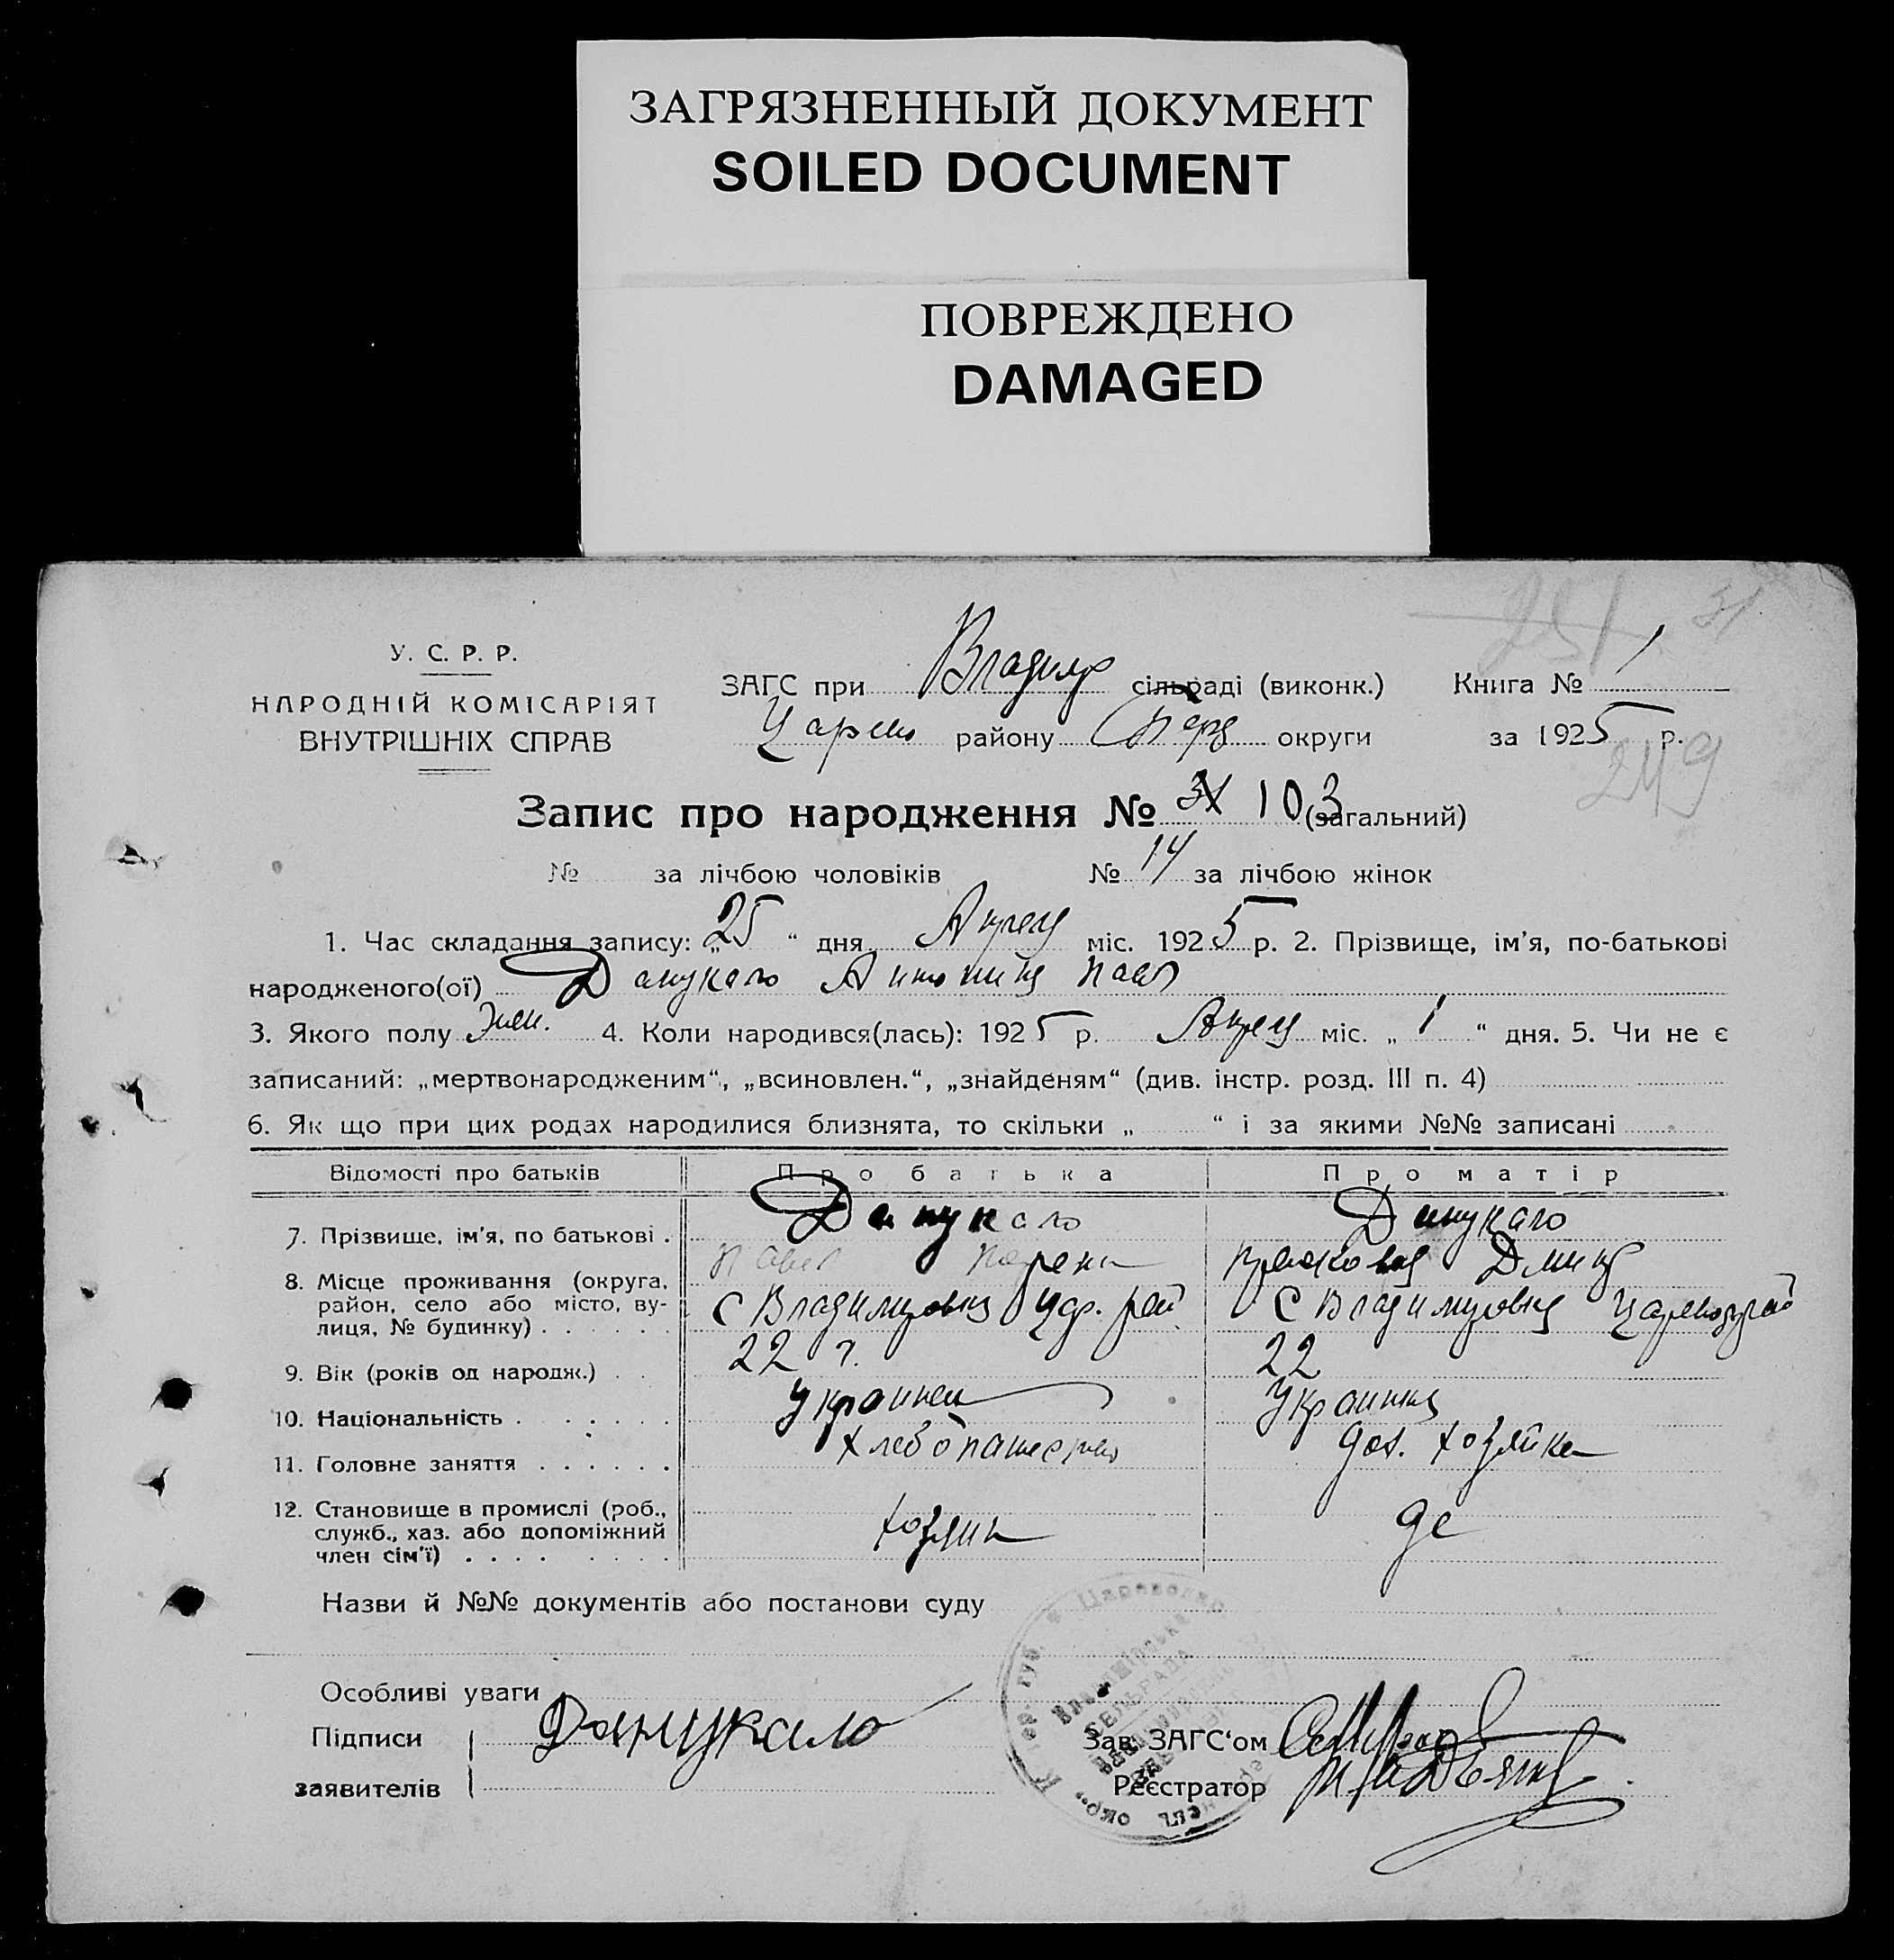 ЗАГРЯЗНЕННЫЙ ДОКУМЕНТ
SOILED DOCUMENT
ПОВРЕЖДЕНО
DAMAGED
251 31
У. С. Р. Р.
НАРОДНІЙ КОМІСАРІЯТ
ВНУТРІШНІХ СПРАВ
ЗАГС при Владимр сільраді (виконк.) Книга № 1
Царено району Перв округи за 1925 р.
249
Запис про народження № 31 103 (загальний)
№ за лічбою чоловіків № 14 за лічбою жінок
1. Час складання запису: „25“ дня Апреля міс. 1925 р. 2. Прізвище, ім’я, по-батькові
народженого(ої) Данукало Антонина Пав
3. Якого полу Жен. 4. Коли народився(лась): 1925 р. Апреля міс. „1“ дня. 5. Чи не є
записаний: „мертвонародженим“, „всиновлен.“, „знайденям“ (див. інстр. розд. III п. 4)
6. Як що при цих родах народилися близнята, то скільки „ “ і за якими №№ записані
Відомості про батьків Про батька Про матір
7. Прізвище, ім’я, по батькові . Данукало Данукало
Павел Прасковья Дмит
8. Місце проживання (округа, район, село або місто, вулиця, № будинку) . С Владимировка Цар. рай. С Владимировка
9. Вік (років од народж.) . 22 г. 22
10. Національність . Украинец Украинка
11. Головне заняття . Хлебопашество дом. хозяйка
12. Становище в промислі (роб., служб., хаз. або допоміжний член сім’ї) . хозяин
Назви й №№ документів або постанови суду
Особливі уваги
Підписи Данукало Зав. ЗАГС‘ом
заявителів Реєстратор